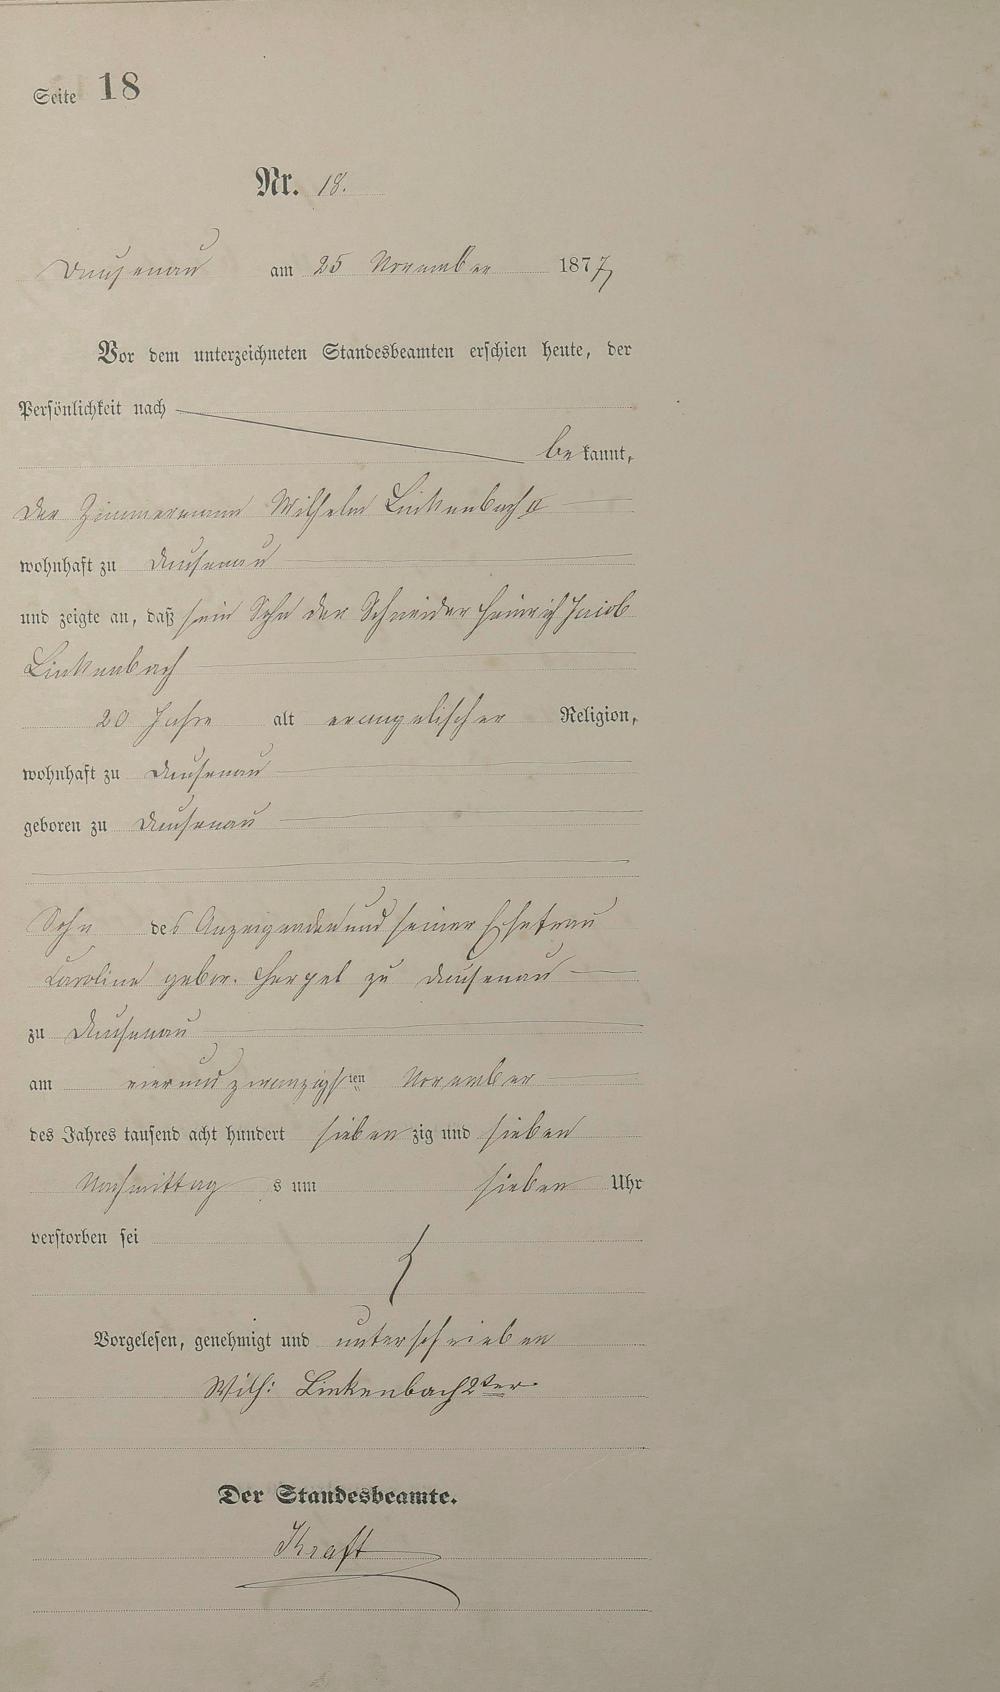 Seite 18
Nr. 18.
Dausenau am 25 November 1877
Vor dem unterzeichneten Standesbeamten erschien heute, der
Persönlichkeit nach
bekannt,
der Zimmermann Wilhelm Linkenbach II
wohnhaft zu Dausenau
und zeigte an, daß sein Sohn der Schneider Heinrich Jacob
Linkenbach
20 Jahre alt evangelischer Religion,
wohnhaft zu Dausenau
geboren zu Dausenau
Sohn des Anzeigenden und seiner Ehefrau
Caroline gebor. Herpel zu Dausenau
zu Dausenau
am vierundzwanzigsten November
des Jahres tausend acht hundert siebenzig und sieben
Nachmittags um sieben Uhr
verstorben sei
Vorgelesen, genehmigt und unterschrieben
Wilh: Linkenbach 2ter
Der Standesbeamte.
Kraft